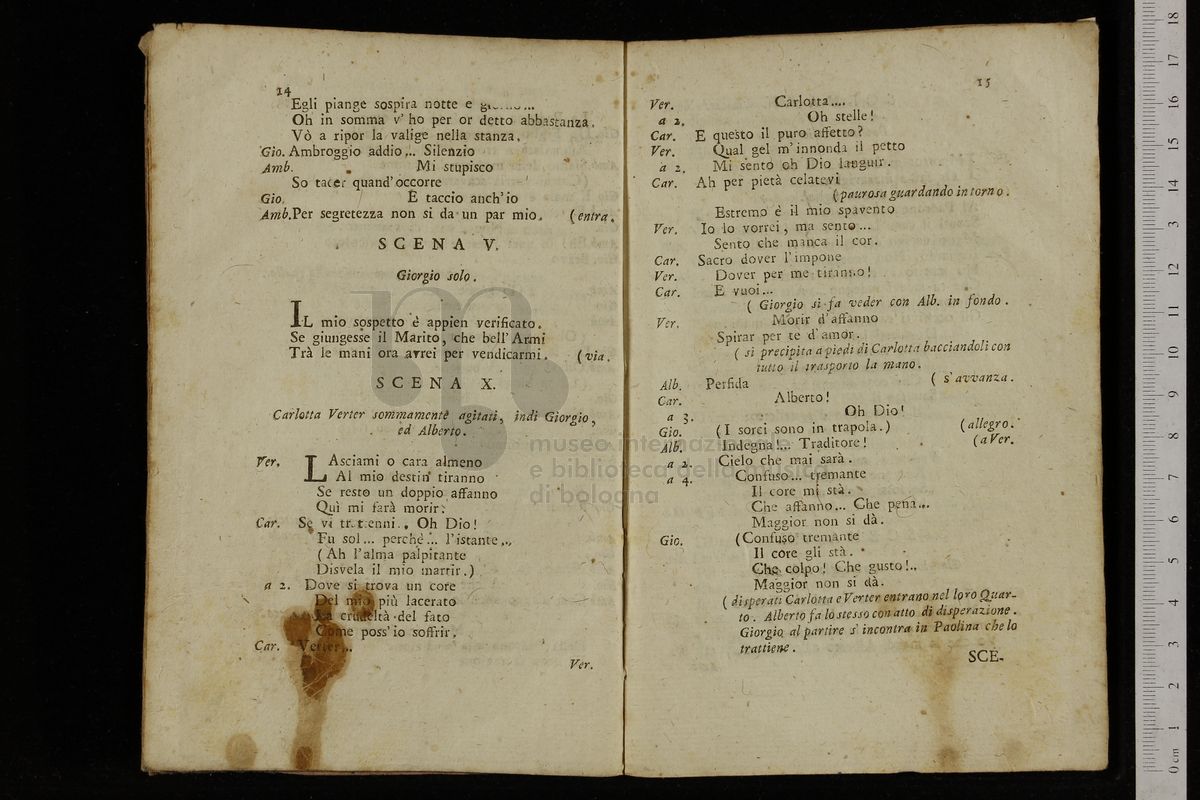 14
Egli piange sospira notte e
Oh in somma v' ho per or detto abbastanza.
Vò a ripor la valige nella stanza.
Gio. Ambroggio addio... Silenzio
Amb. Mi stupisco
So tacer quand' occorre
Gio. E taccio anch' io
Amb. Per segretezza non si da un par mio. (entra.
SCENA V.
Giorgio solo.
IL mio sospetto è appien verificato.
Se giungesse il Marito, che bell' Armi
Trà le mani ora avrei per vendicarmi. (via.
SCENA X.
Carlotta Verter sommamente agitati, indi Giorgio,
ed Alberto.
Ver. LAsciami o cara almeno
Al mio destin tiranno
Se resto un doppio affanno
Quì mi farà morir.
Car. Se vi trattenni.. Oh Dio!
Fu sol... perchè... l'istante...
(Ah l'alma palpitante
Disvela il mio martir.)
a 2. Dove si trova un core
Del mio più lacerato
La crudeltà del fato
Come poss' io soffrir.
Car. Verter...
Ver.
15
Ver. Carlotta....
a 2. Oh stelle!
Car. E questo il puro affetto?
Ver. Qual gel m' innonda il petto
a 2. Mi sento oh Dio languir.
Car. Ah per pietà celatevi
(paurosa guardando in torno.
Estremo è il mio spavento
Ver. Io lo vorrei, ma sento...
Sento che manca il cor.
Car. Sacro dover l'impone
Ver. Dover per me tiranno!
Car. E vuoi...
(Giorgio si fa veder con Alb. in fondo.
Ver. Morir d'affanno
Spirar per te d'amor.
(si precipita a piedi di Carlotta bacciandoli con
tutto il trasporto la mano.
Alb. Perfida (s'avvanza.
Car. Alberto!
a 3. Oh Dio!
Gio. (I sorci sono in trapola.) (allegro.
Alb. Indegna!... Traditore! (a Ver.
a 2. Cielo che mai sarà.
a 4. Confuso... tremante
Il core mi stà.
Che affanno... Che pena...
Maggior non si dà.
Gio. (Confuso tremante
Il core gli stà.
Che colpo! Che gusto!..
Maggior non si dà.
(disperati Carlotta e Verter entrano nel loro Quar-
to. Alberto fa lo stesso con atto di disperazione.
Giorgio al partire s'incontra in Paolina che lo
trattiene.
SCE-
museo internazionale
e biblioteca della musica
di bologna
0 cm 1 2 3 4 5 6 7 8 9 10 11 12 13 14 15 16 17 18